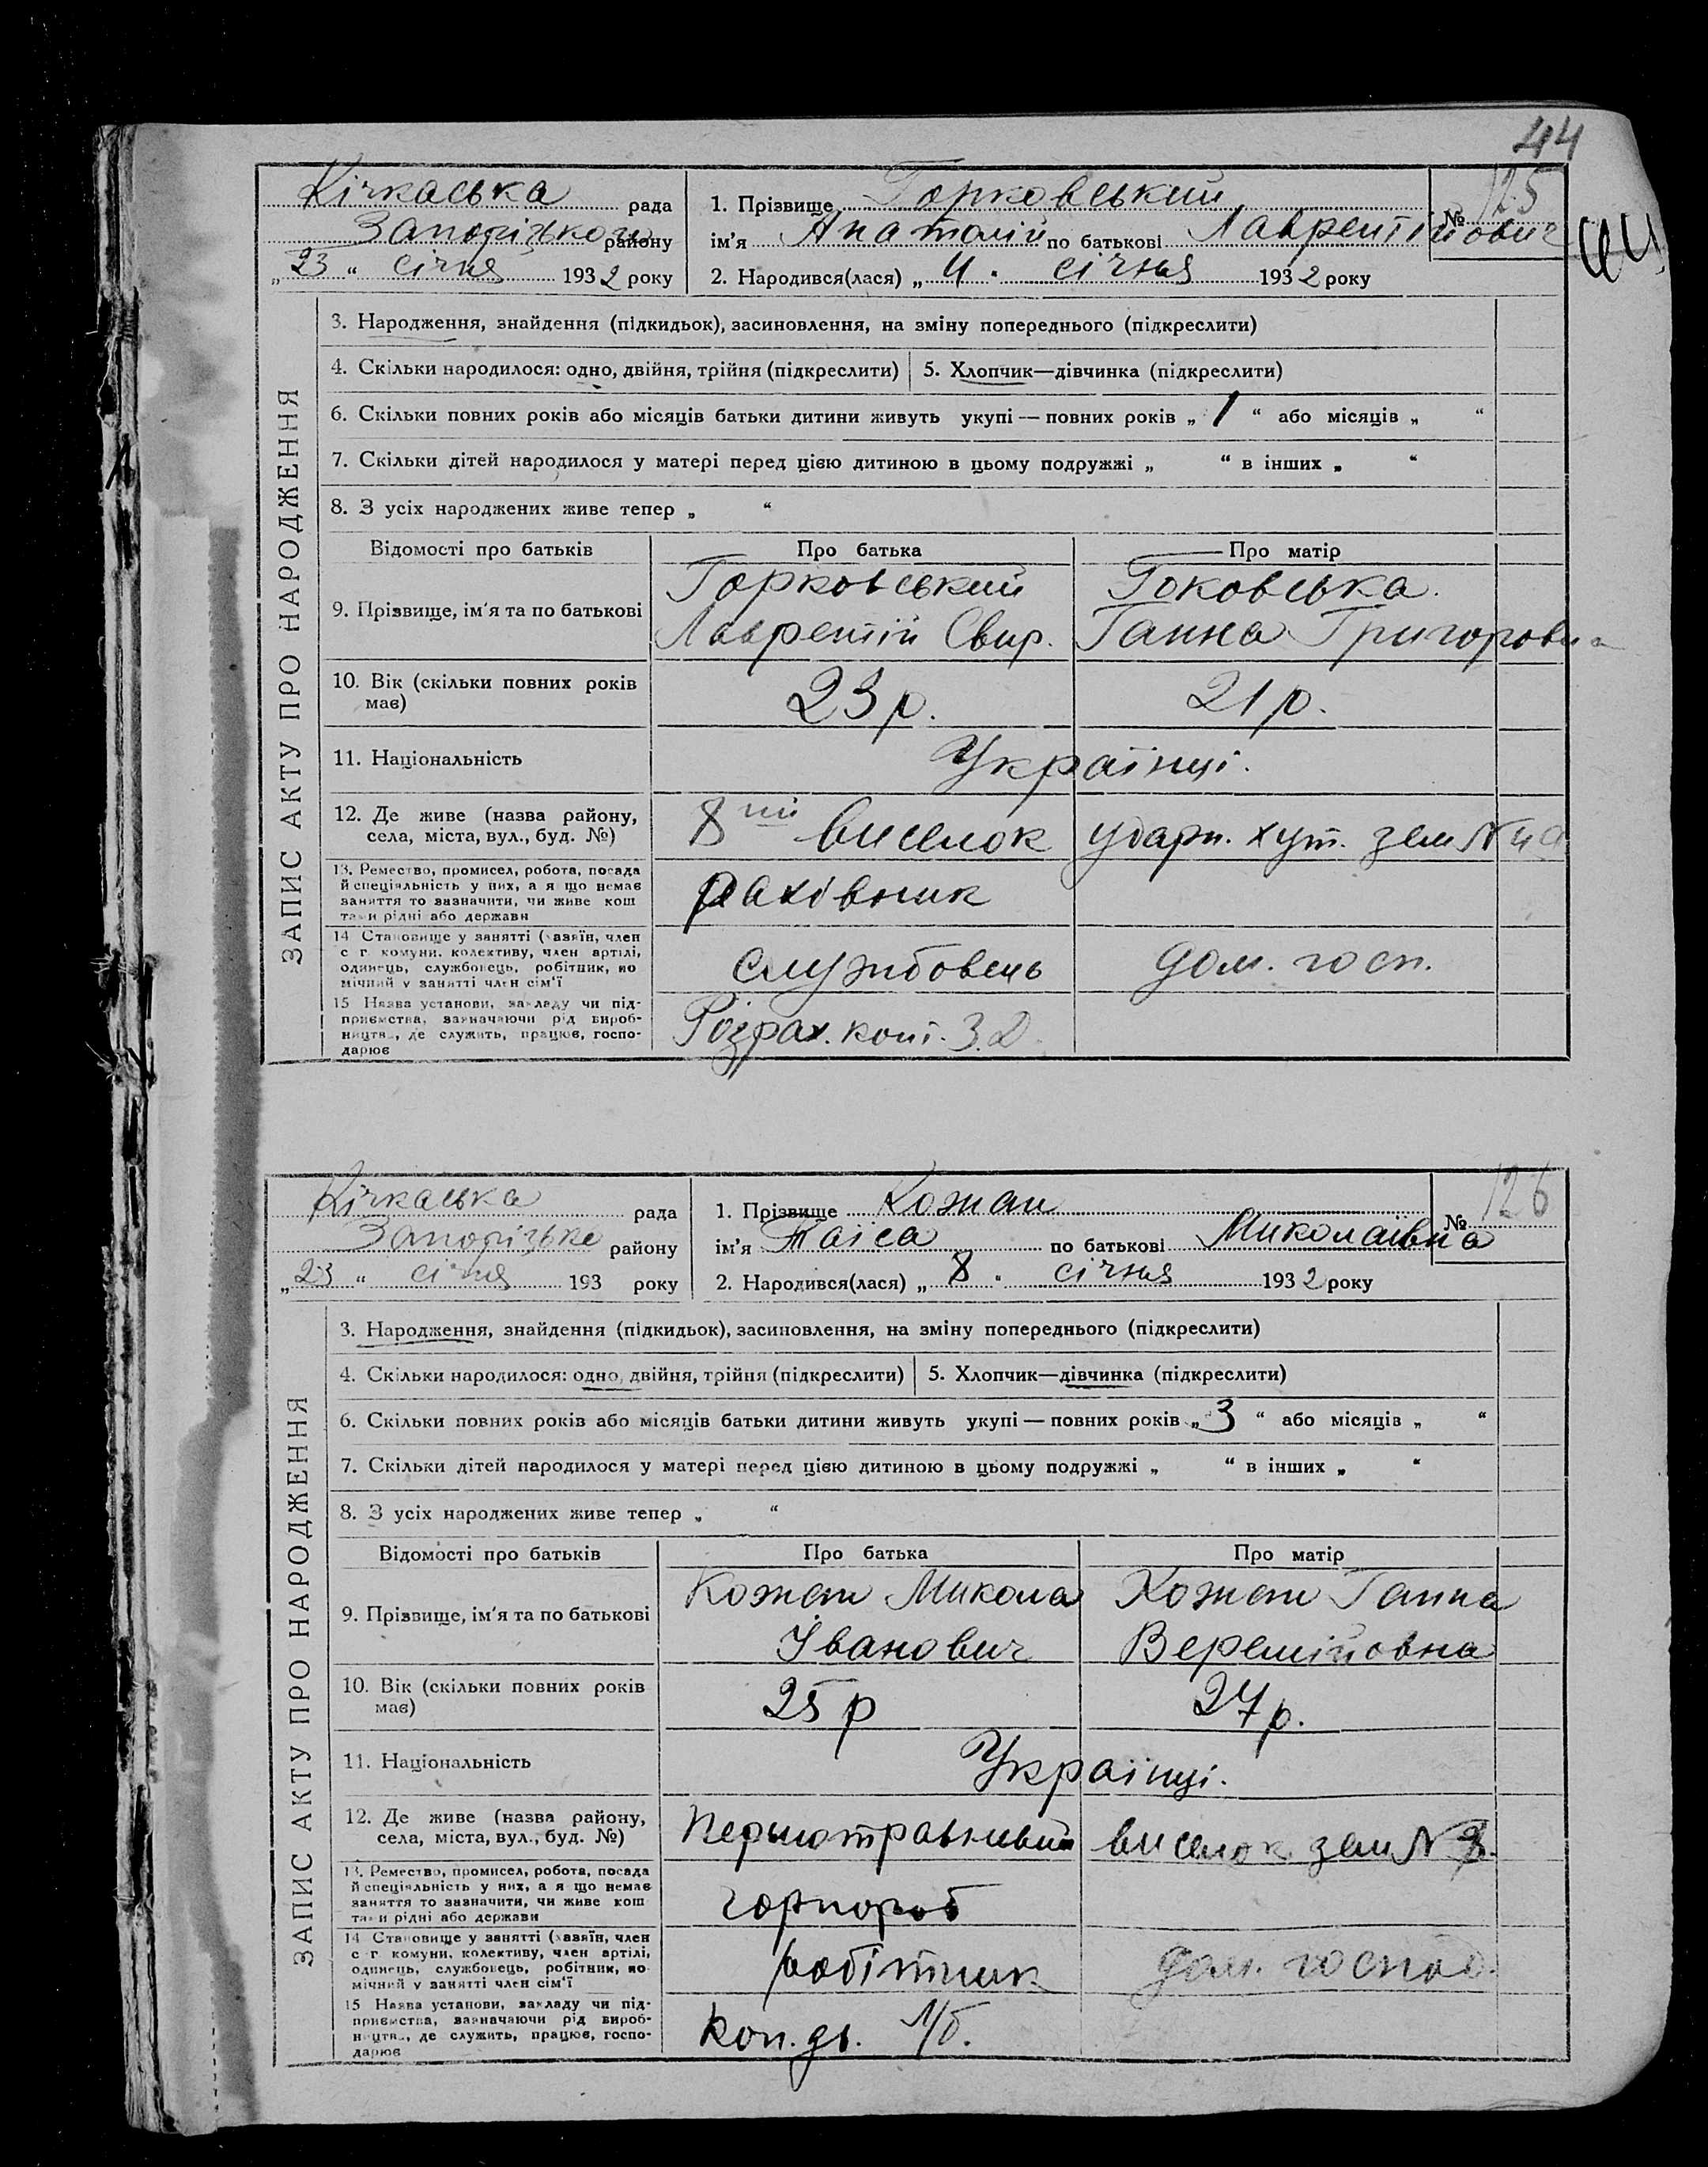 44
Кічкаська рада
Запорізького району
„23“ січня 1932 року
1. Прізвище Горковський
№ 125
ім'я Анатолій по батькові Лаврентійович
2. Народився(лася) „4“ січня 1932 року
ЗАПИС АКТУ ПРО НАРОДЖЕННЯ
3. Народження, знайдення (підкидьок), засиновлення, на зміну попереднього (підкреслити)
4. Скільки народилося: одно, двійня, трійня (підкреслити)
5. Хлопчик—дівчинка (підкреслити)
6. Скільки повних років або місяців батьки дитини живуть укупі — повних років „1“ або місяців „ “
7. Скільки дітей народилося у матері перед цією дитиною в цьому подружжі „ “ в інших „ “
8. З усіх народжених живе тепер „ “
Відомості про батьків Про батька Про матір
9. Прізвище, ім'я та по батькові
Горковський
Лаврентій Свир.
Гоковська
Ганна Григоровна
10. Вік (скільки повних років має)
23 р.
21 р.
11. Національність
Українці.
12. Де живе (назва району, села, міста, вул., буд. №)
8ий виселок ударн. хут. зем №
13. Ремество, промисел, робота, посада й спеціяльність у них, а я що немає заняття то зазначити, чи живе кош тами рідні або держави
рахівник
14 Становище у занятті (хазяїн, член с г комуни, колективу, член артілі, одинець, службовець, робітник, помічний у занятті член сім'ї
службовець
дом. госп.
15 Назва установи, закладу чи підприємства, зазначаючи рід виробництва, де служить, працює, господарює
Розрах. конт. З.Д.
Кічкаська рада
Запорізьке району
„23“ січня 193 року
1. Прізвище Кожан
№ 126
ім'я Таіса по батькові Миколаївна
2. Народився(лася) „8“ січня 1932 року
ЗАПИС АКТУ ПРО НАРОДЖЕННЯ
3. Народження, знайдення (підкидьок), засиновлення, на зміну попереднього (підкреслити)
4. Скільки народилося: одно, двійня, трійня (підкреслити)
5. Хлопчик—дівчинка (підкреслити)
6. Скільки повних років або місяців батьки дитини живуть укупі — повних років „3“ або місяців „ “
7. Скільки дітей народилося у матері перед цією дитиною в цьому подружжі „ “ в інших „ “
8. З усіх народжених живе тепер „ “
Відомості про батьків Про батька Про матір
9. Прізвище, ім'я та по батькові
Кожан Микола
Іванович
Кожан Ганна
Веремійовна
10. Вік (скільки повних років має)
25 р
27 р.
11. Національність
Українці.
12. Де живе (назва району, села, міста, вул., буд. №)
Першотравневий виселок зем №
13. Ремество, промисел, робота, посада й спеціяльність у них, а я що немає заняття то зазначити, чи живе кош тами рідні або держави
чорнороб
14 Становище у занятті (хазяїн, член с г комуни, колективу, член артілі, одинець, службовець, робітник, помічний у занятті член сім'ї
робітник
дом. господ.
15 Назва установи, закладу чи підприємства, зазначаючи рід виробництва, де служить, працює, господарює